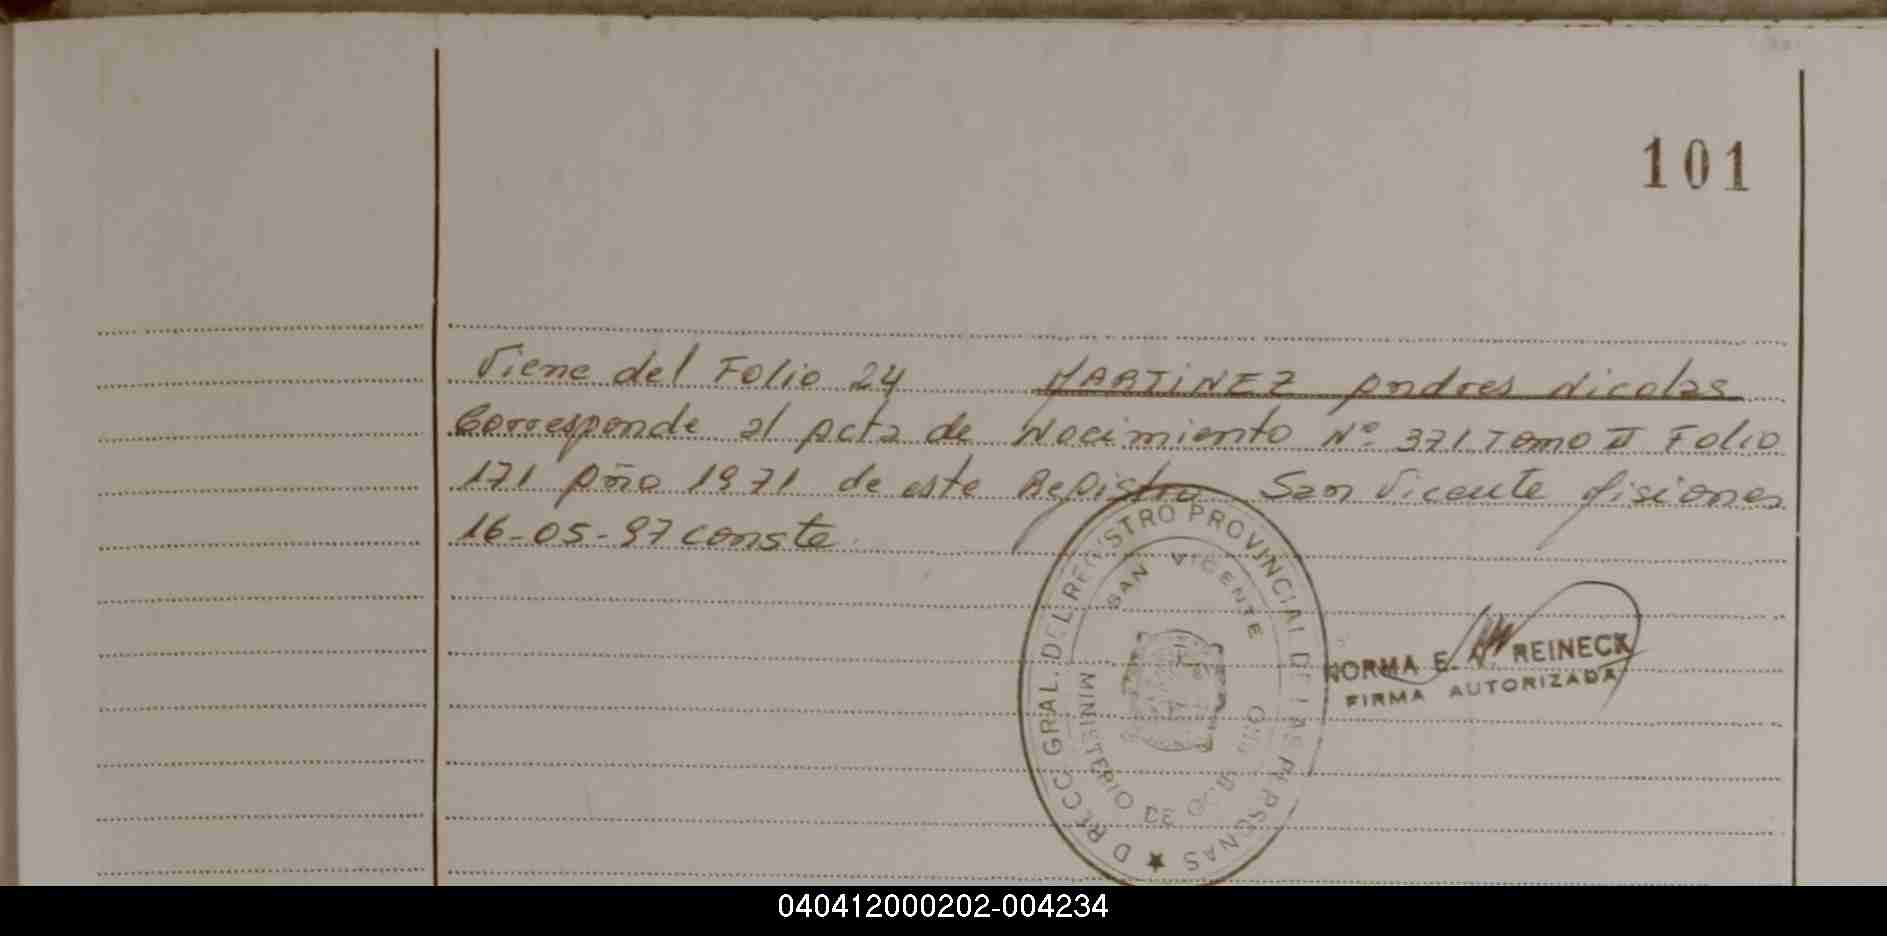 101
Viene del Folio 24 MARTINEZ Andres Nicolas
Corresponde al Acta de Nacimiento Nº 371 Tomo II Folio
171 Año 1971 de este Registro San Vicente Misiones
16-05-97 conste
DIRECC. GRAL. DEL REGISTRO PROVINCIAL DE LAS PERSONAS
SAN VICENTE
MINISTERIO DE GOBIERNO
NORMA E. A. REINECK
FIRMA AUTORIZADA
040412000202-004234